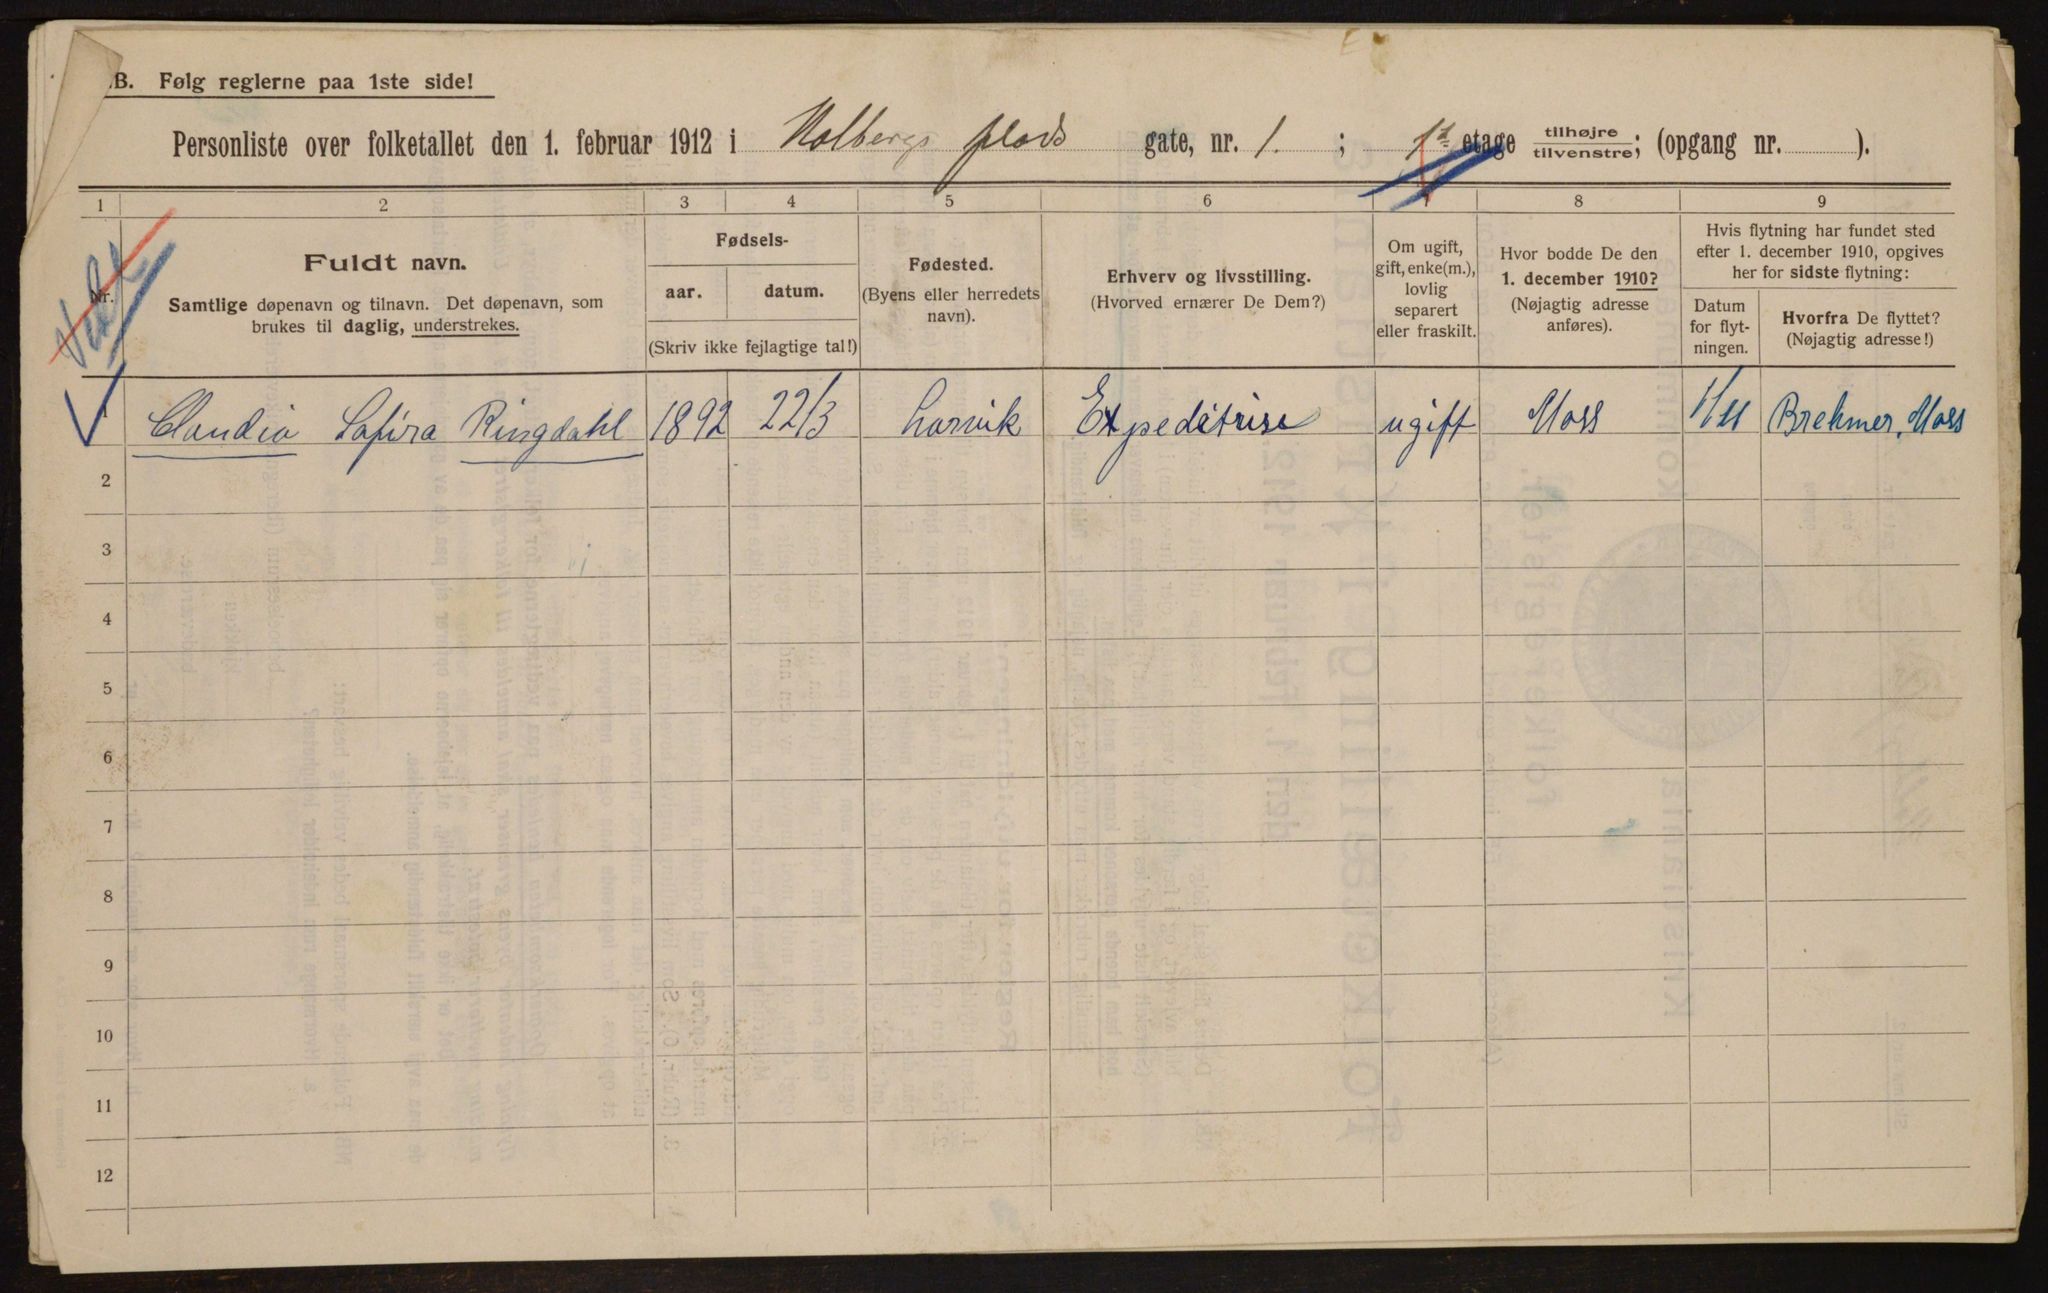 N.B. Følg reglerne paa 1ste side!
Personliste over folketallet den 1. februar 1912 i Holbergs plads gate, nr. 1. ; 1ste etage tilhøjre tilvenstre; (opgang nr. ).
1 2 3 4 5 6 7 8 9
Nr.
Fuldt navn.
Samtlige døpenavn og tilnavn. Det døpenavn, som
brukes til daglig, understrekes.
Fødsels-
aar. datum.
(Skriv ikke fejlagtige tal!)
Fødested.
(Byens eller herredets
navn).
Erhverv og livsstilling.
(Hvorved ernærer De Dem?)
Om ugift,
gift, enke(m.),
lovlig
separert
eller fraskilt.
Hvor bodde De den
1. december 1910?
(Nøjagtig adresse
anføres).
Hvis flytning har fundet sted
efter 1. december 1910, opgives
her for sidste flytning:
Datum
for flyt-
ningen.
Hvorfra De flyttet?
(Nøjagtig adresse!)
1 Claudia Safira Ringdahl 1892 22/3 Larvik Expeditrise ugift Moss 1/11 Brehmer, Moss
2
3
4
5
6
7
8
9
10
11
12